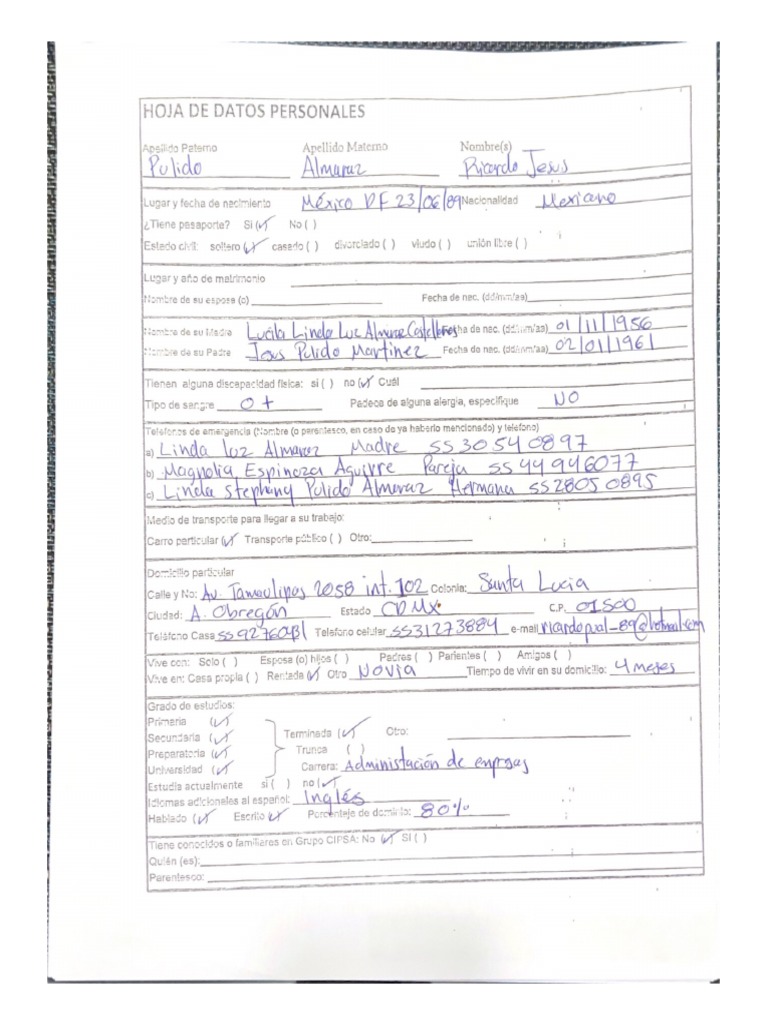 HOJA DE DATOS PERSONALES
Apellido Paterno Apellido Materno Nombre(s)
Pulido Almaraz Ricardo Jesus
Lugar y fecha de nacimiento México DF 23/06/89 Nacionalidad Mexicano
¿Tiene pasaporte? Si (✓) No ( )
Estado civil: soltero (✓) casado ( ) divorciado ( ) viudo ( ) unión libre ( )
Lugar y año de matrimonio
Nombre de su esposa (o) Fecha de nac. (dd/mm/aa)
Nombre de su Madre Lucila Linda Luz Almaraz Castellanos Fecha de nac. (dd/mm/aa) 01/11/1956
Nombre de su Padre Jesus Pulido Martinez Fecha de nac. (dd/mm/aa) 02/01/1961
Tienen alguna discapacidad física: si ( ) no (✓) Cuál
Tipo de sangre O+ Padece de alguna alergia, especifique NO
Teléfonos de emergencia (Nombre (o parentesco, en caso de ya haberlo mencionado) y teléfono)
a) Linda luz Almaraz Madre 55 3054 0897
b) Magnolia Espinoza Aguirre Pareja 55 44946077
c) Linda Stephany Pulido Almaraz Hermana 55 2805 0895
Medio de transporte para llegar a su trabajo:
Carro particular (✓) Transporte público ( ) Otro:
Domicilio particular
Calle y No: Av. Tamaulipas 2058 int. 102 Colonia: Santa Lucia
Ciudad: A. Obregón Estado CDMX C.P. 01500
Teléfono Casa Teléfono celular 5531273884 e-mail
Vive con: Solo ( ) Esposa (o) hijos ( ) Padres ( ) Parientes ( ) Amigos ( )
Vive en: Casa propia ( ) Rentada (✓) Otro Novia Tiempo de vivir en su domicilio: 4 meses
Grado de estudios:
Primaria (✓)
Secundaria (✓) Terminada (✓) Otro:
Preparatoria (✓) Trunca ( )
Universidad (✓) Carrera: Administación de empresas
Estudia actualmente si ( ) no (✓)
Idiomas adicionales al español: Inglés
Hablado (✓) Escrito (✓) Porcentaje de dominio: 80%
Tiene conocidos o familiares en Grupo CIPSA: No (✓) SI ( )
Quién (es):
Parentesco: